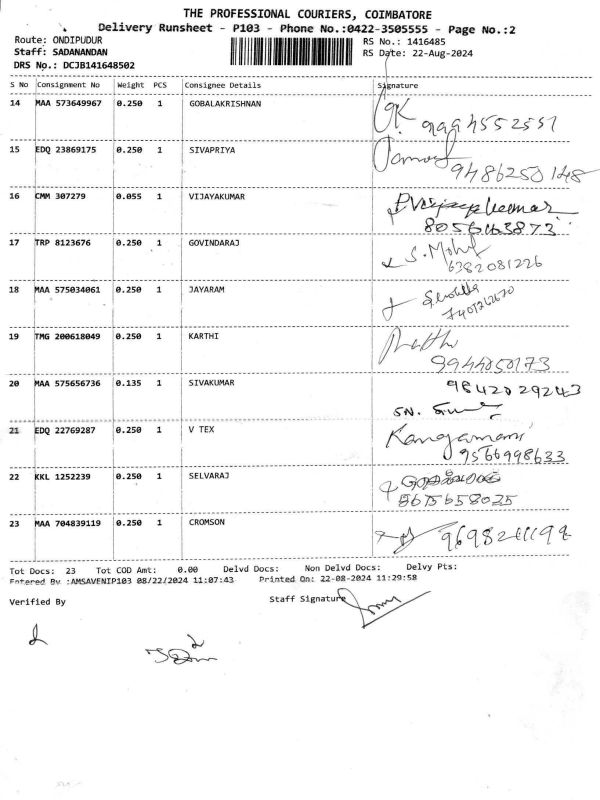 THE PROFESSIONAL COURIERS, COIMBATORE
Delivery Runsheet - P103 - Phone No.:0422-3505555 - Page No.:2
Route: ONDIPUDUR RS No.: 1416485
Staff: SADANANDAN RS Date: 22-Aug-2024
DRS No.: DCJB141648502
S No Consignment No Weight PCS Consignee Details Signature
14 MAA 573649967 0.250 1 GOBALAKRISHNAN
GK. 9994552551
15 EDQ 23869175 0.250 1 SIVAPRIYA
9486250148
16 CMM 307279 0.055 1 VIJAYAKUMAR P Vijayakumar
8056463873
17 TRP 8123676 0.250 1 GOVINDARAJ S. Mohd
6382081226
18 MAA 575034061 0.250 1 JAYARAM
19 TMG 200618049 0.250 1 KARTHI
9944050173
20 MAA 575656736 0.135 1 SIVAKUMAR 9842029243
SN.
21 EDQ 22769287 0.250 1 V TEX Kangamani
9566998633
22 KKL 1252239 0.250 1 SELVARAJ
8675658025
23 MAA 704839119 0.250 1 CROMSON
Tot Docs: 23 Tot COD Amt: 0.00 Delvd Docs: Non Delvd Docs: Delvy Pts:
Entered By :AMSAVENIP103 08/22/2024 11:07:43 Printed On: 22-08-2024 11:29:58
Verified By Staff Signature